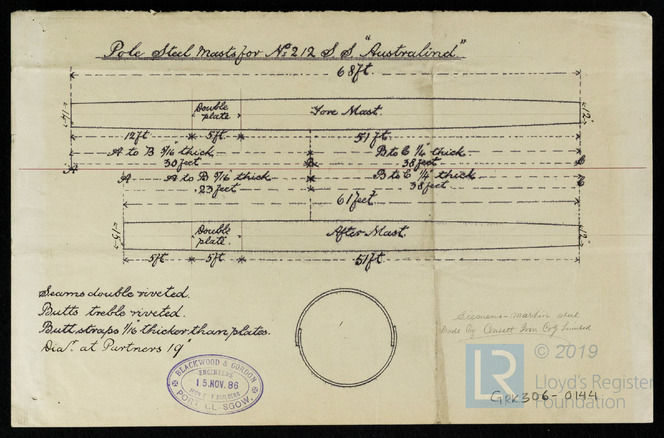 Pole Steel Masts for No. 212 S.S. "Australind"
68 ft.
14"
Double plate
Fore Mast.
12"
12 ft
5 ft
51 ft.
A to B 5/16 thick
30 feet
B to C 1/4" thick.
38 feet
A
B
C
A to B 5/16" thick
23 feet
B to C 1/4" thick
38 feet
A
C
61 feet
15"
Double plate.
After Mast.
12"
5 ft
5 ft
51 ft.
Seams double riveted.
Butts treble riveted.
Butt straps 1/16 thicker than plates.
Diar. at Partners 19"
BLACKWOOD & GORDON
ENGINEERS
15 NOV. 86
PORT GLASGOW.
Siemens-Martin steel
Made by Consett Iron Coy Limited
LR
© 2019
Lloyd's Register
Foundation
GRK306-0144